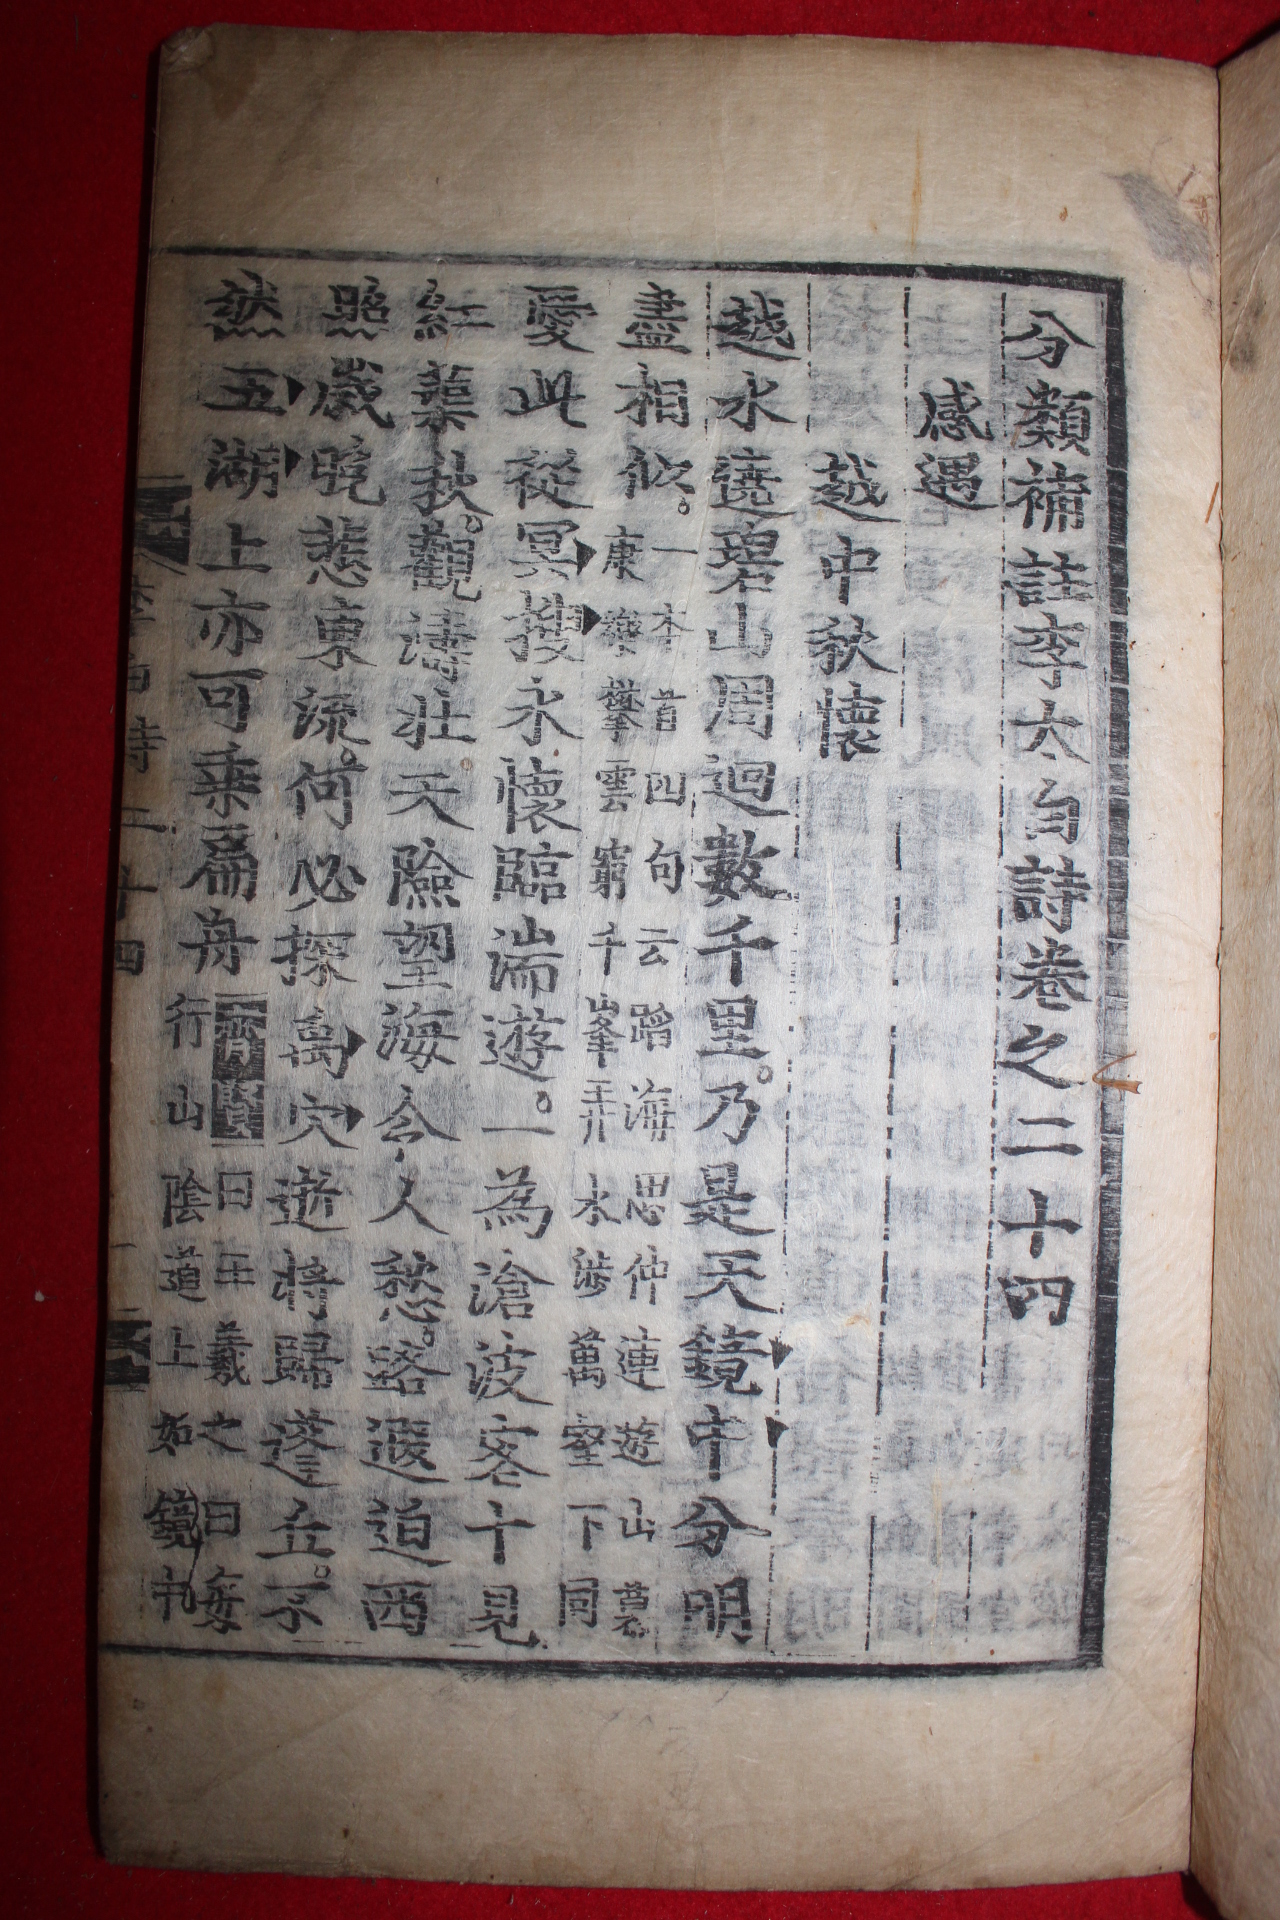 分類補註李太白詩卷之二十四
感遇
越中秋懷
越水遶碧山周迴數千里。乃是天鏡中分明
盡相似。一本首四句云蹈海思仲連遊山慕
康樂攀雲窮千峯弄水涉萬壑下同
愛此從冥搜永懷臨湍遊。一為滄波客十見
紅蕖秋。觀濤壯天險望海令人愁。路遐迫西
照歲晚悲東流。何必探禹穴逝將歸蓬丘。不
然五湖上亦可乘扁舟齊賢曰王羲之曰每
行山陰道上如鏡中